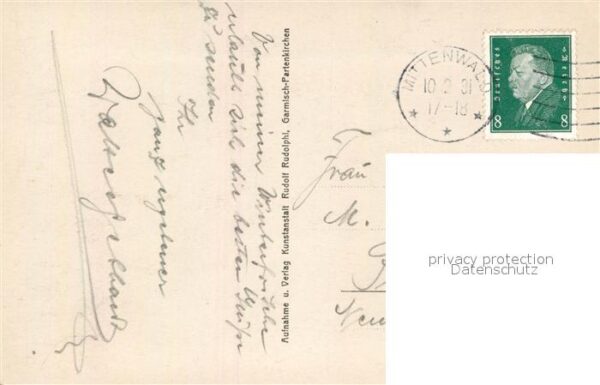 Von meiner Winterfrische
erlaubt sich die besten Grüße
zu senden
Ihr
ganz ergebener
Aufnahme u. Verlag Kunstanstalt Rudolf Rudolphi, Garmisch-Partenkirchen
MITTENWALD
10 2 31
17-18
Deutsches Reich
8 8
Frau
M.
privacy protection
Datenschutz